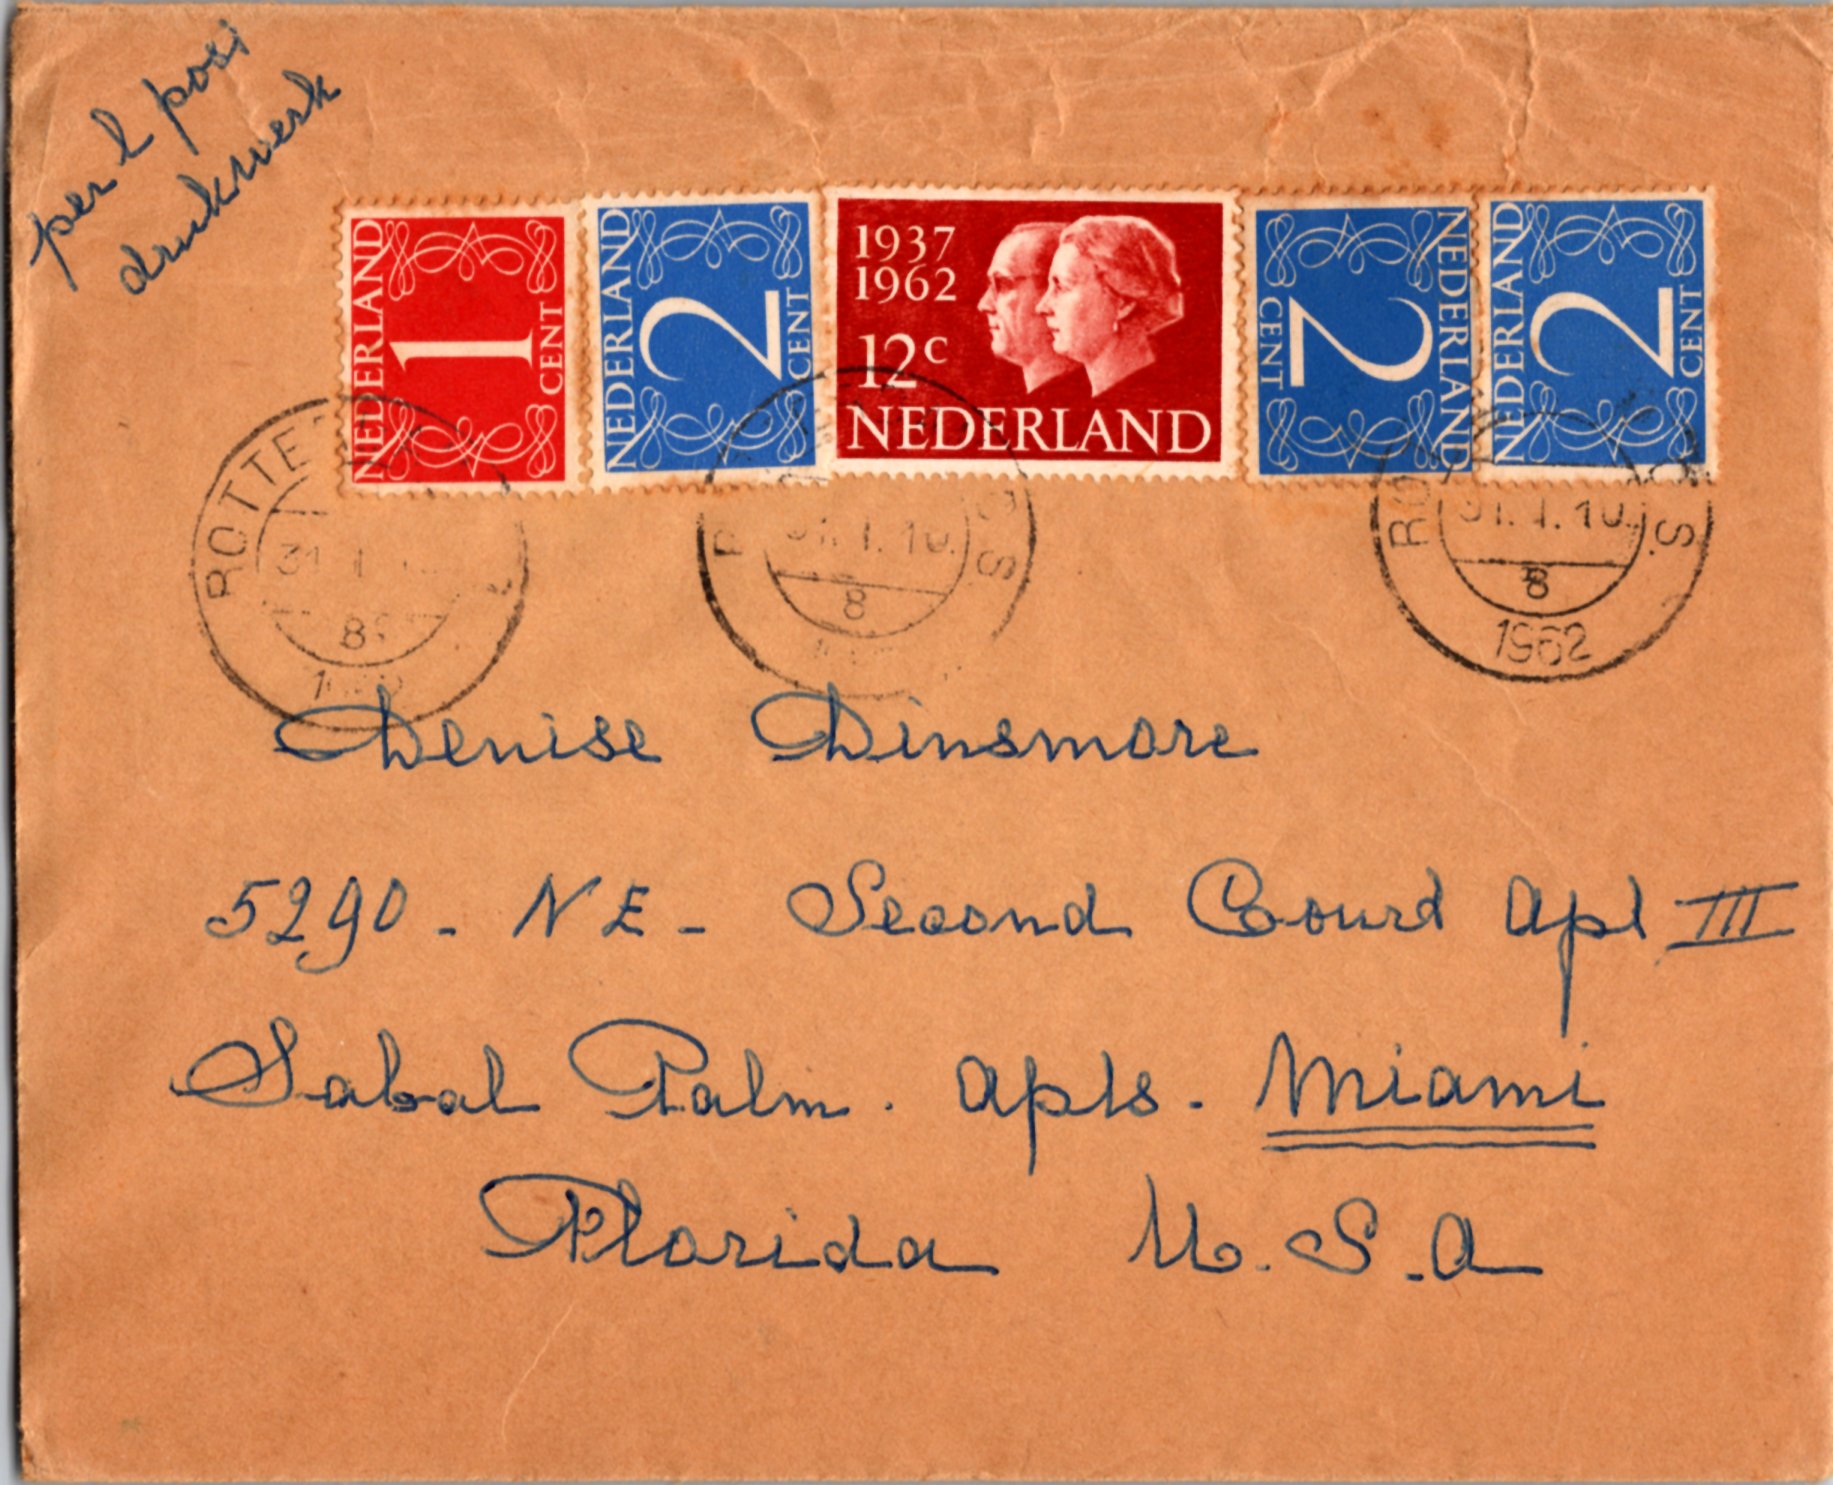 per l post
drukwerk
NEDERLAND
1
CENT
NEDERLAND
2
CENT
1937
1962
12c
NEDERLAND
NEDERLAND
2
CENT
NEDERLAND
2
CENT
8
8
31.1.10.
8
1962
Denise Dinsmore
5290 - NE - Second Court Apt III
Sabal Palm. apts. Miami
Florida U.S.A